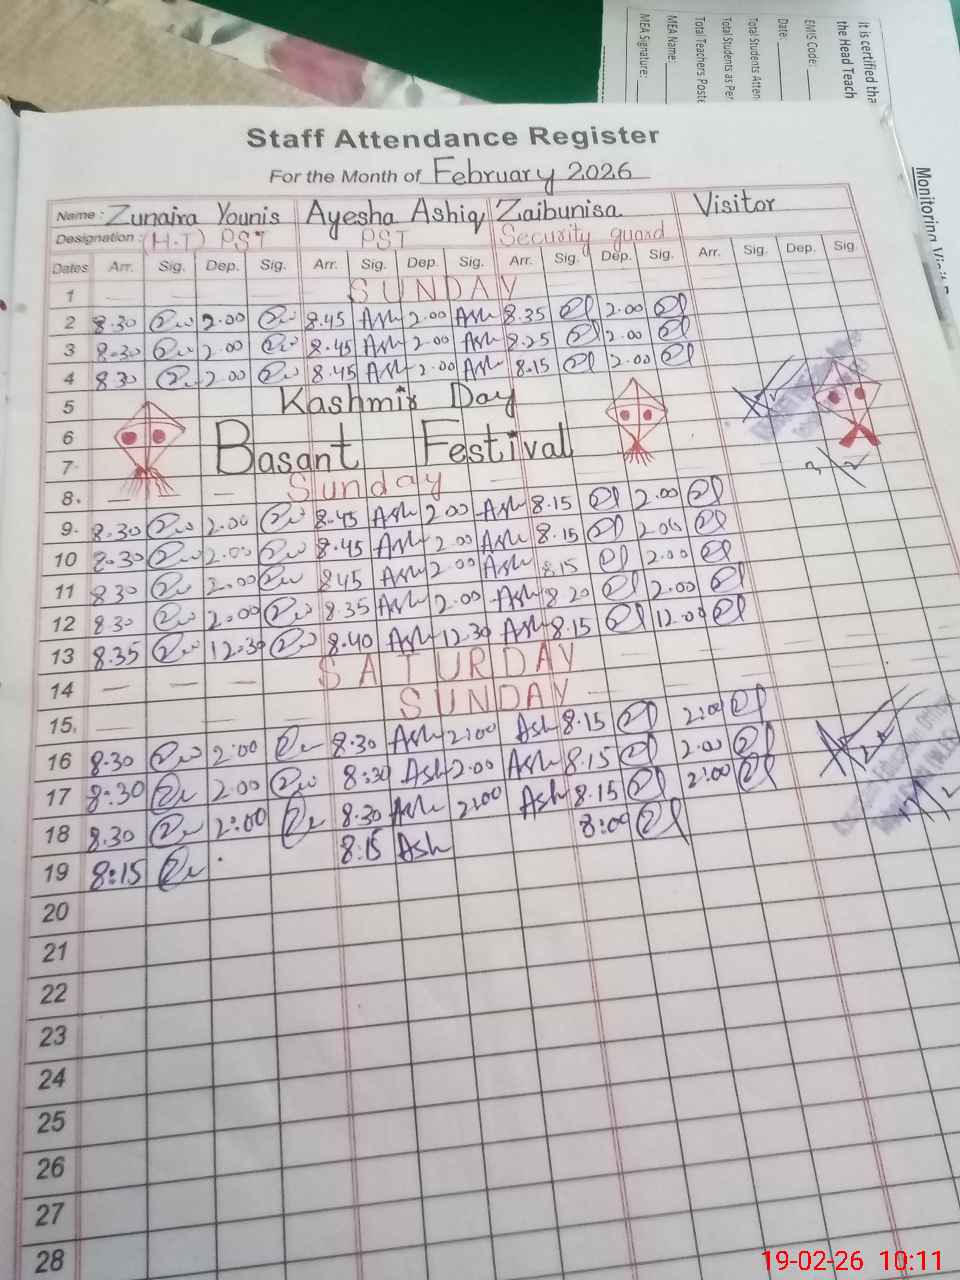 It is certified tha
the Head Teach
EMIS Code:
Date:
Total Students Atten
Total Students as Per
Total Teachers Poste
MEA Name:
MEA Signature:
Staff Attendance Register
For the Month of February 2026
Name: Zunaira Younis Ayesha Ashiq Zaibunisa Visitor
Designation: (H.T) PST PST Security guard
Dates Arr. Sig. Dep. Sig. Arr. Sig. Dep. Sig. Arr. Sig. Dep. Sig. Arr. Sig. Dep. Sig.
1 SUNDAY
2 8.30 2.00 8.45 Ash 2.00 Ash 8.35 2.00
3 8.30 2.00 8.45 Ash 2.00 Ash 8.25 2.00
4 8.30 2.00 8.45 Ash 2.00 Ash 8.15 2.00
5 Kashmir Day
6 Basant Festival
7
8. Sunday
9. 8.30 2.00 8.45 Ash 2.00 Ash 8.15 2.00
10 8.30 2.00 8.45 Ash 2.00 Ash 8.15 2.00
11 8.30 2.00 8.45 Ash 2.00 Ash 8.15 2.00
12 8.30 2.00 8.35 Ash 2.00 Ash 8.20 2.00
13 8.35 12.30 8.40 Ash 12.30 Ash 8.15 12.00
14 SATURDAY
15. SUNDAY
16 8.30 2:00 8.30 Ash 2:00 Ash 8.15 2:00
17 8:30 2.00 8:30 Ash 2.00 Ash 8.15 2.00
18 8.30 2:00 8.30 Ash 2:00 Ash 8.15 2:00
19 8:15 8:15 Ash 8:00
20
21
22
23
24
25
26
27
28
19-02-26 10:11